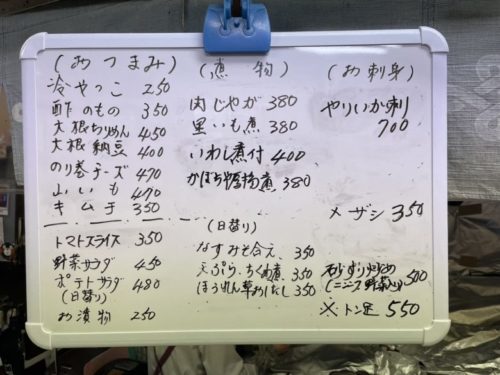 (おつまみ)
冷やっこ 250
酢のもの 350
大根ちりめん 450
大根納豆 400
のり巻チーズ 470
山いも 470
キムチ 350
トマトスライス 350
野菜サラダ 450
ポテトサラダ 480
(日替り)
お漬物 250
(煮物)
肉じゃが 380
里いも煮 380
いわし煮付 400
かぼちゃ 煮 380
(日替り)
なすみそ合え 350
天ぷら、ちくわ煮 350
ほうれん草おひたし 350
(お刺身)
やりいか刺
700
メザシ 350
砂ずり炒め
(ニンニク野菜入り) 500
※トン足 550